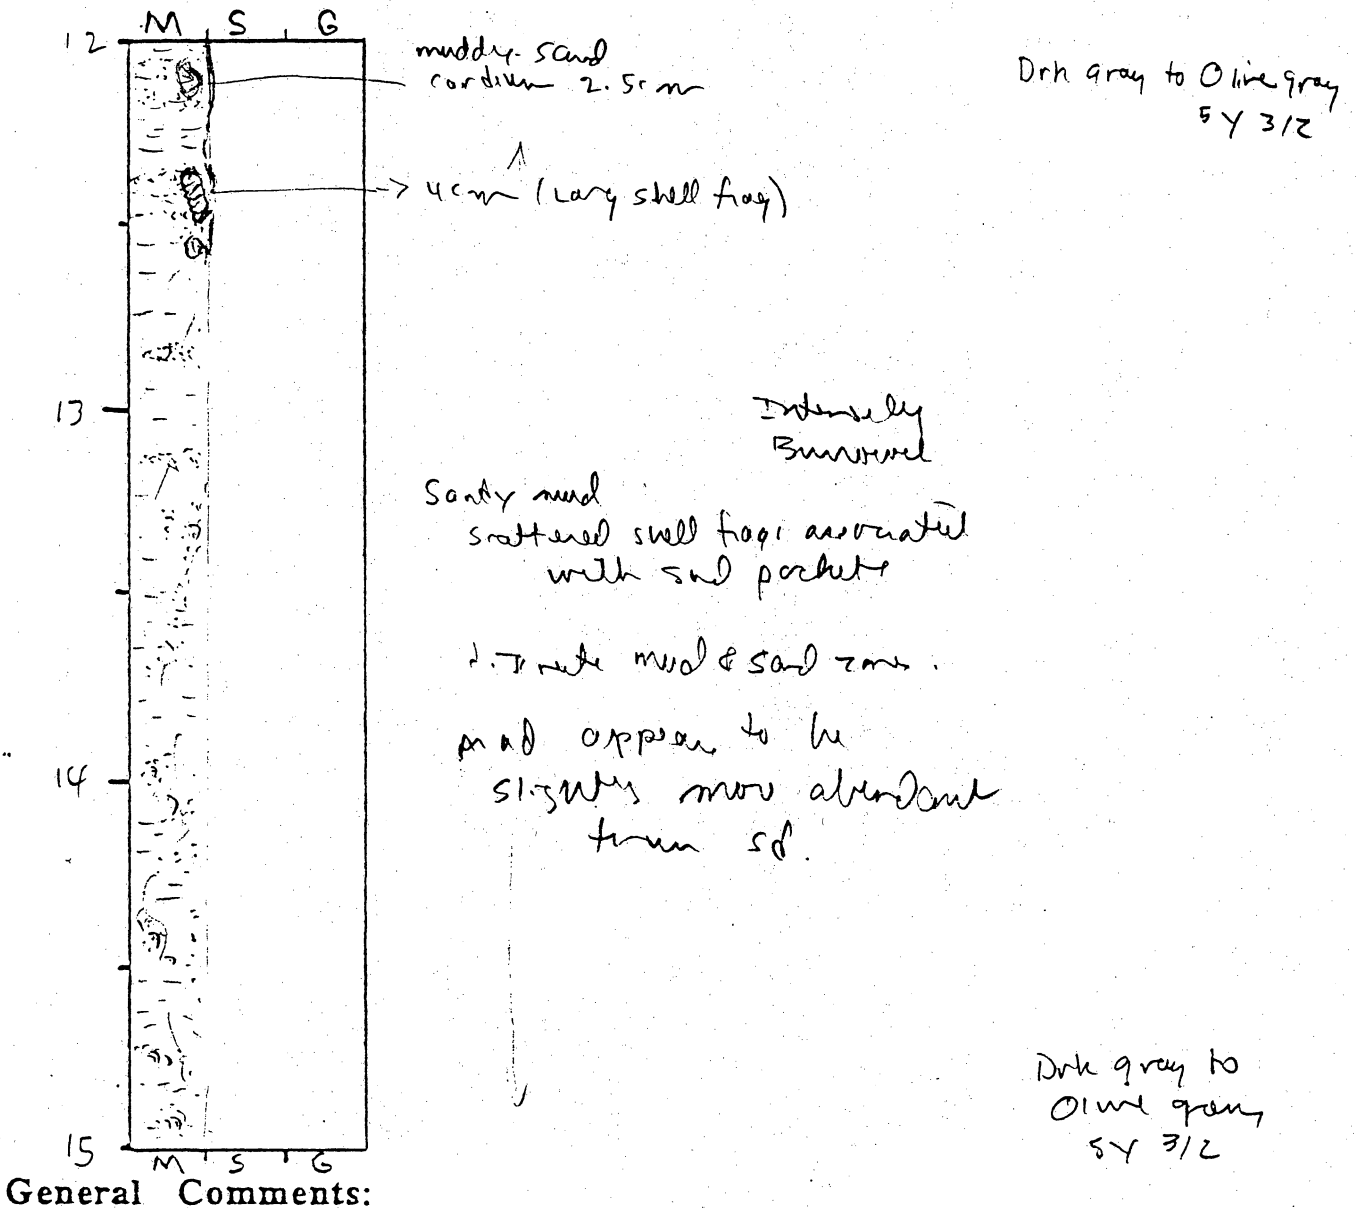 M S G
12
muddy sand
cardium 2.5cm
Drk gray to Olive gray
5Y 3/2
4cm (Larg shell frag)
13
Intensely
Burrowed
Sandy mud
scattered shell frags associated
with sand pockets
mud & sand zones.
mud appears to be
14
slightly more abundant
than sd.
Drk gray to
Olive gray
5Y 3/2
15
M S G
General Comments: